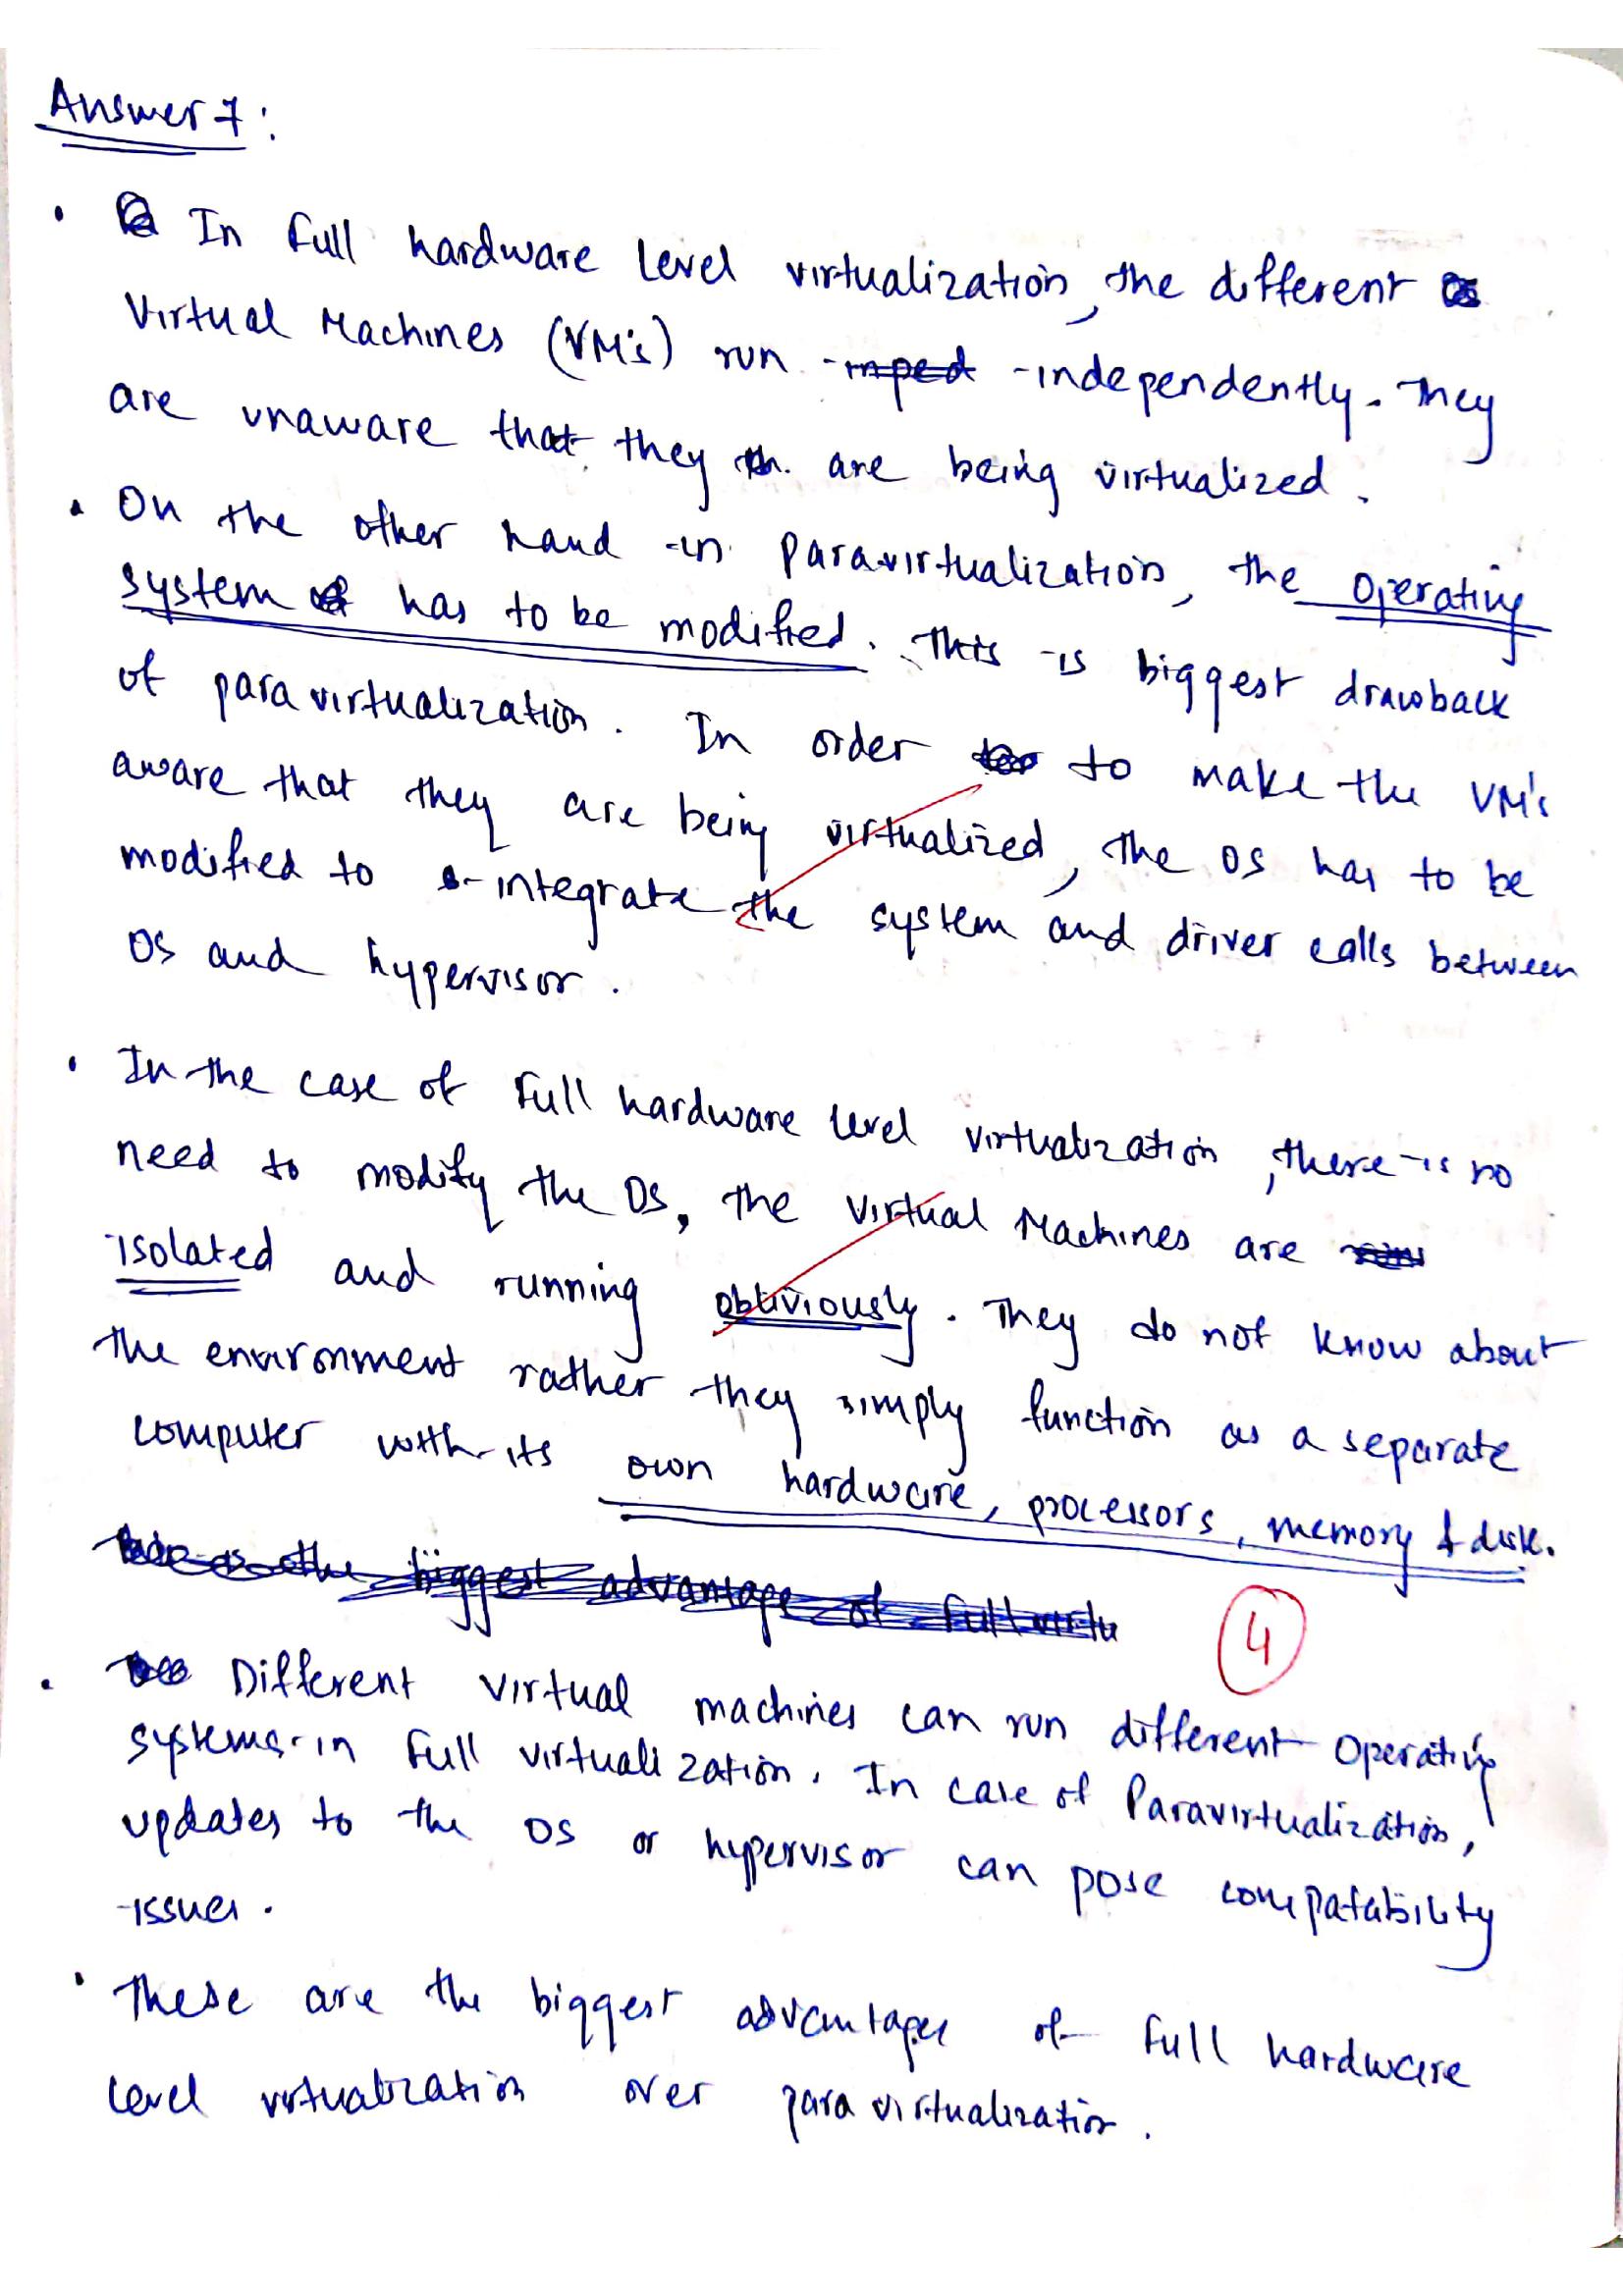 Answer 7:
• In full hardware level virtualization, the different
Virtual Machines (VM's) run imped independently. They
are unaware that they th. are being virtualized.
• On the other hand in Paravirtualization, the Operating
system has to be modified. This is biggest drawback
of paravirtualization. In order to make the VM's
aware that they are being virtualized, the OS has to be
modified to integrate the system and driver calls between
OS and hypervisor.
• In the case of Full hardware level virtualization, there is no
need to modify the OS, the Virtual Machines are
isolated and running obliviously. They do not know about
the environment rather they simply function as a separate
computer with its own hardware, processors, memory & disk.
the biggest advantage of full virtu
4
• Different virtual machines can run different Operating
systems in full virtualization. In case of Paravirtualization,
updates to the OS or hypervisor can pose compatability
issues.
• These are the biggest advantages of full hardware
level virtualization over paravirtualization.